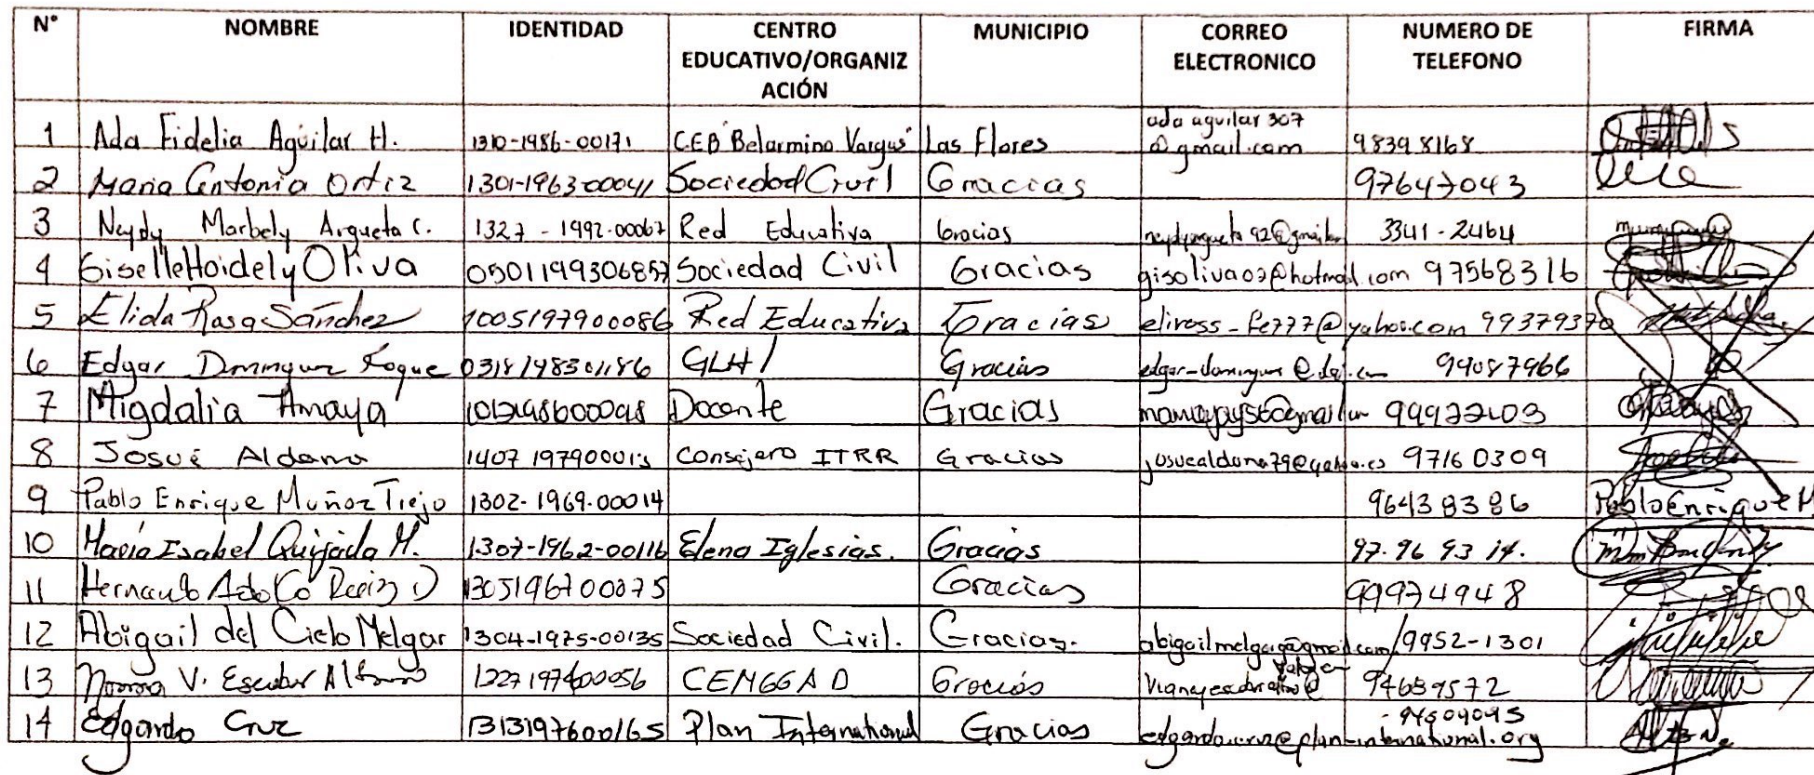 N° NOMBRE IDENTIDAD CENTRO EDUCATIVO/ORGANIZ ACIÓN MUNICIPIO CORREO ELECTRONICO NUMERO DE TELEFONO FIRMA
1 Ada Fidelia Aguilar H. 1310-1986-00171 C.E.B "Belarmino Vargas" Las Flores ada aguilar 307 @gmail.com 98398168
2 Maria Antonia Ortiz 1301-1963-00041 Sociedad Civil Gracias 97647043
3 Neydy Marbely Argueta C. 1327-1992-00067 Red Educativa Gracias 3341-2464
4 Giselle Hoidely Oliva 0501199306857 Sociedad Civil Gracias gisoliva03@hotmail.com 97568316
5 Elida Rosa Sánchez 1005197900086 Red Educativa Gracias eliross_fe777@yahoo.com 99379370
6 Edgar Roque 0318198301186 Gracias 99087966
7 Migdalia Amaya Docente Gracias
8 Josué Aldana Consejero ITRR Gracias 97160309
9 Pablo Enrique Muñoz Trejo 1302-1969-00014 96438386 Pablo Enrique M.
10 María Isabel Quijada M. 1307-1962-00116 Elena Iglesias. Gracias 97-96 93 14.
11 1305196700075 Gracias 99974948
12 Abigail del Cielo Melgar 1304-1975-00135 Sociedad Civil. Gracias. 9952-1301
13 Norma V. Escobar Gracias 94689572
14 Edgardo Cruz 1313197600165 Plan International Gracias edgardo.cruz@plan-international.org